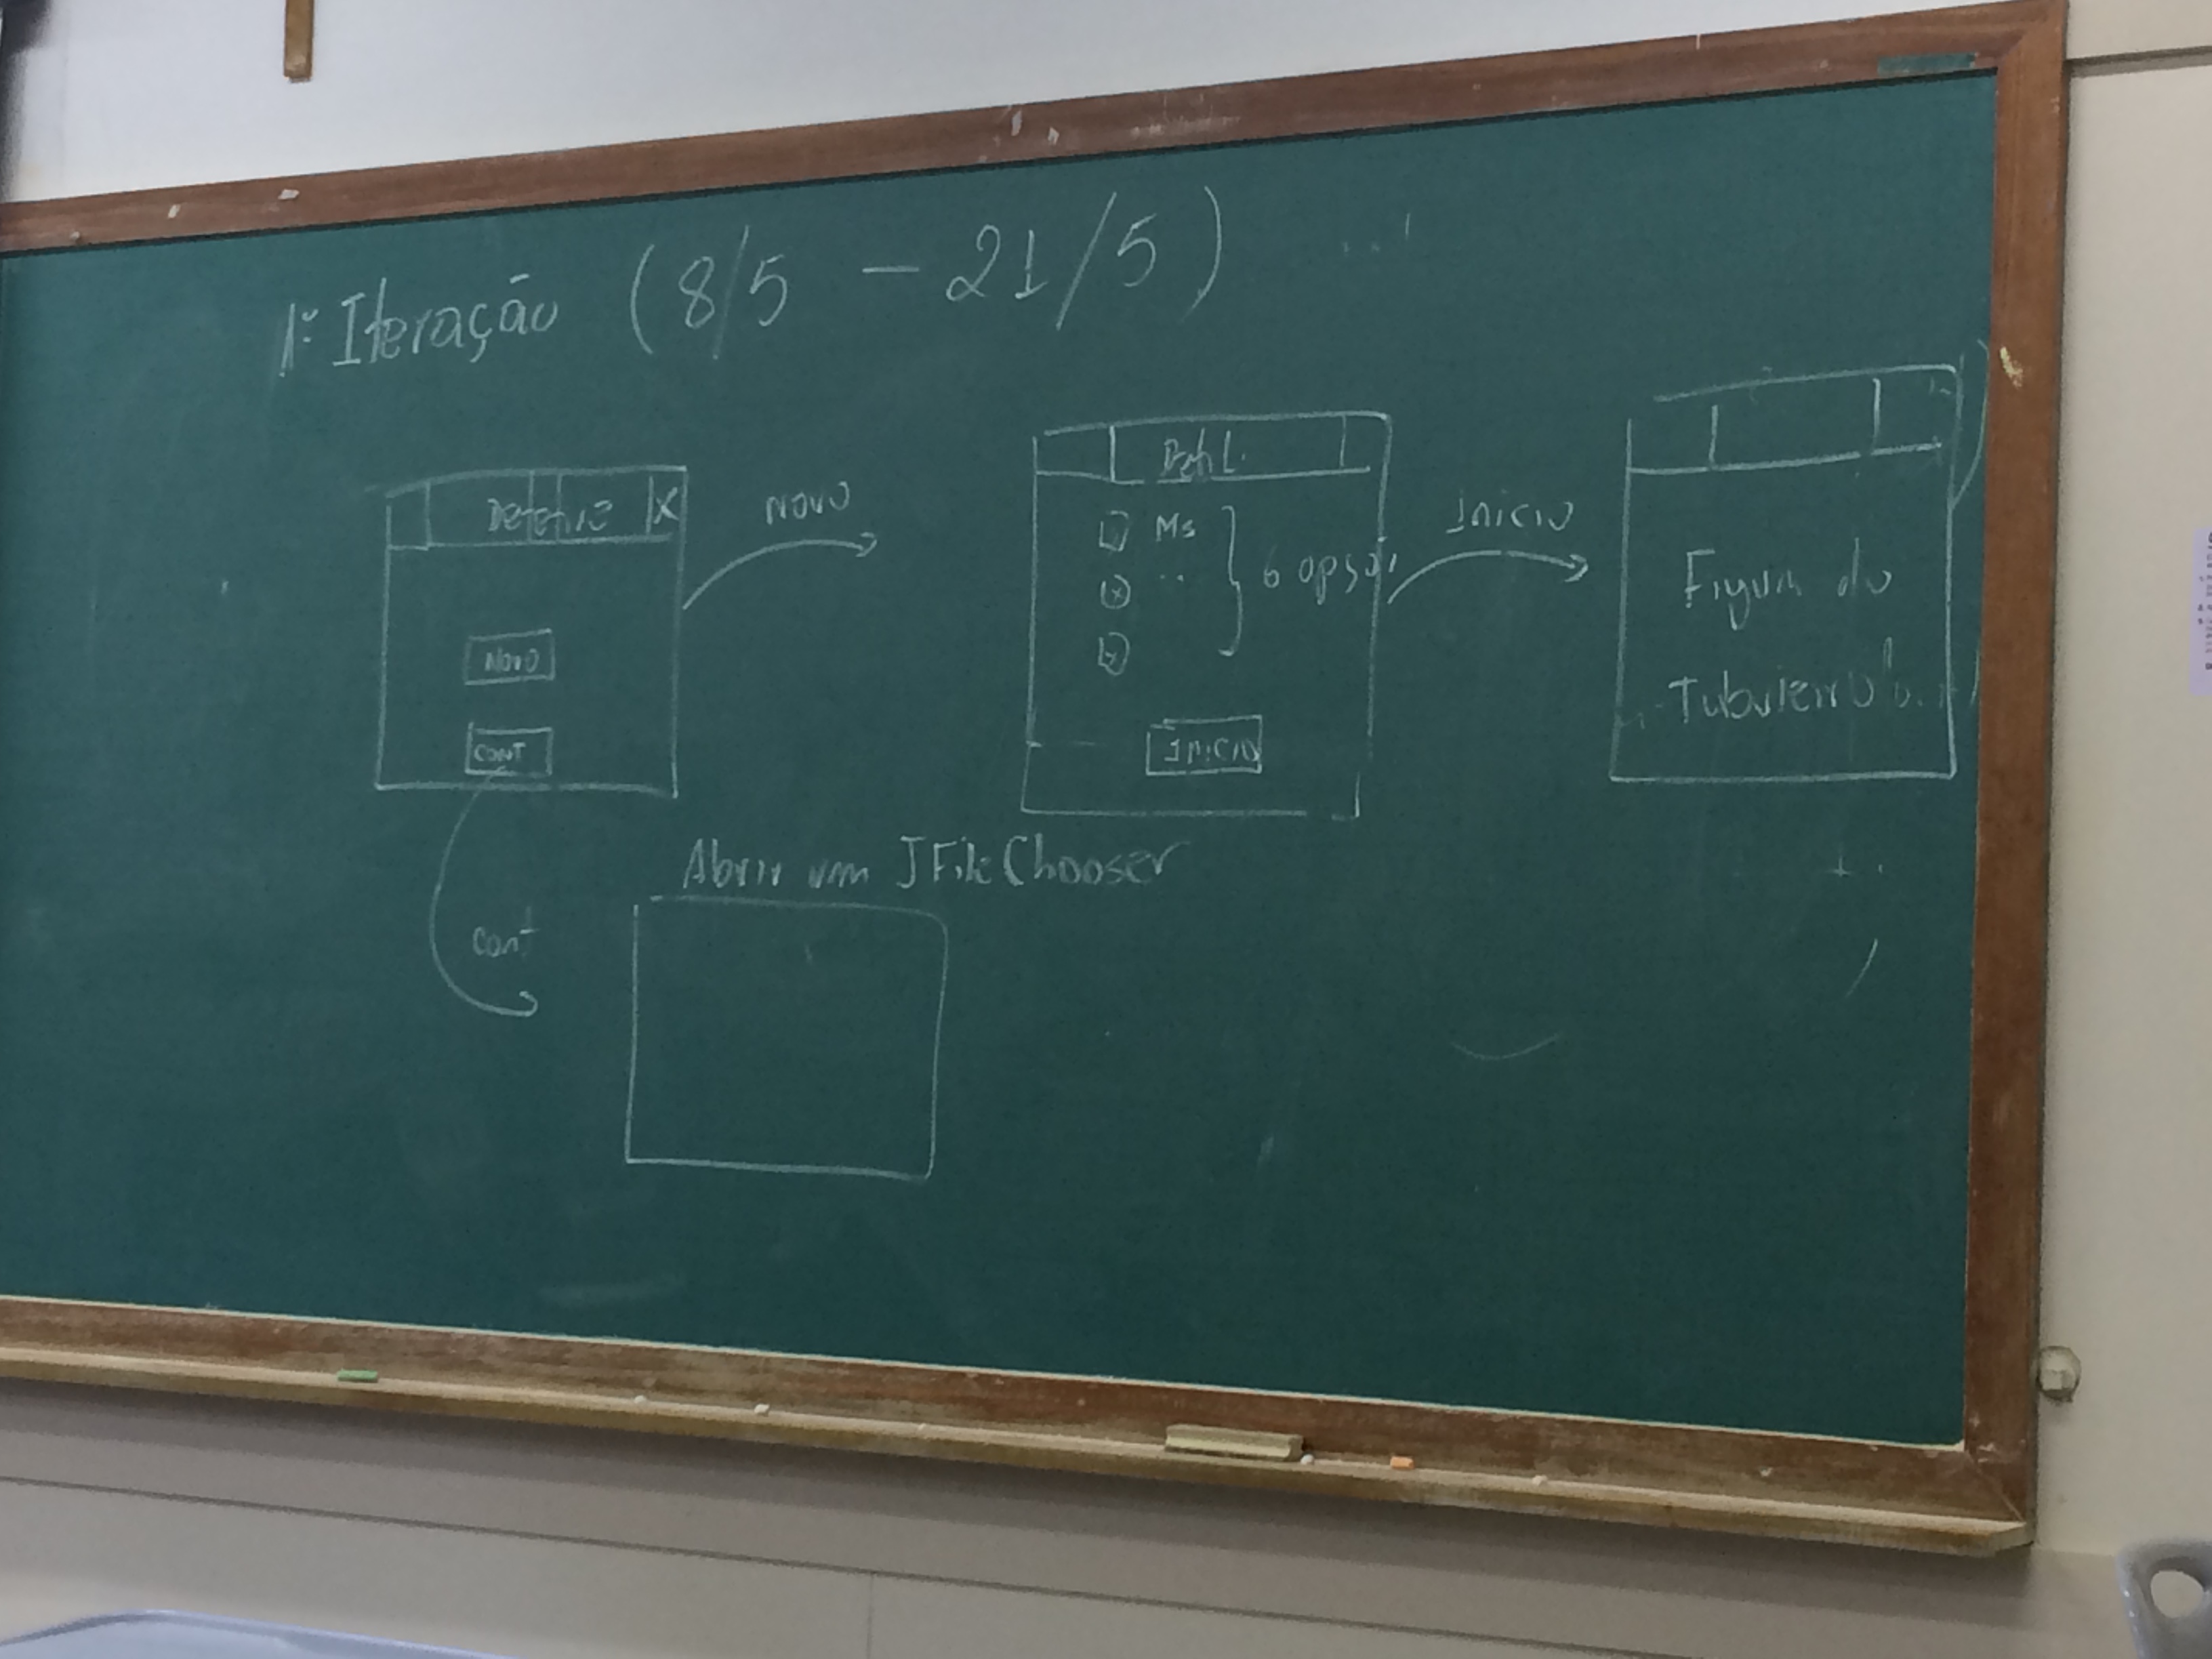 1ª Iteração (8/5 — 21/5)
Detetive X
NOVO
CONT
NOVO
Ms
6 opçõ
INICIO
INICIO
Figura do
Tabuleiro
Abrir um JFileChooser
cont